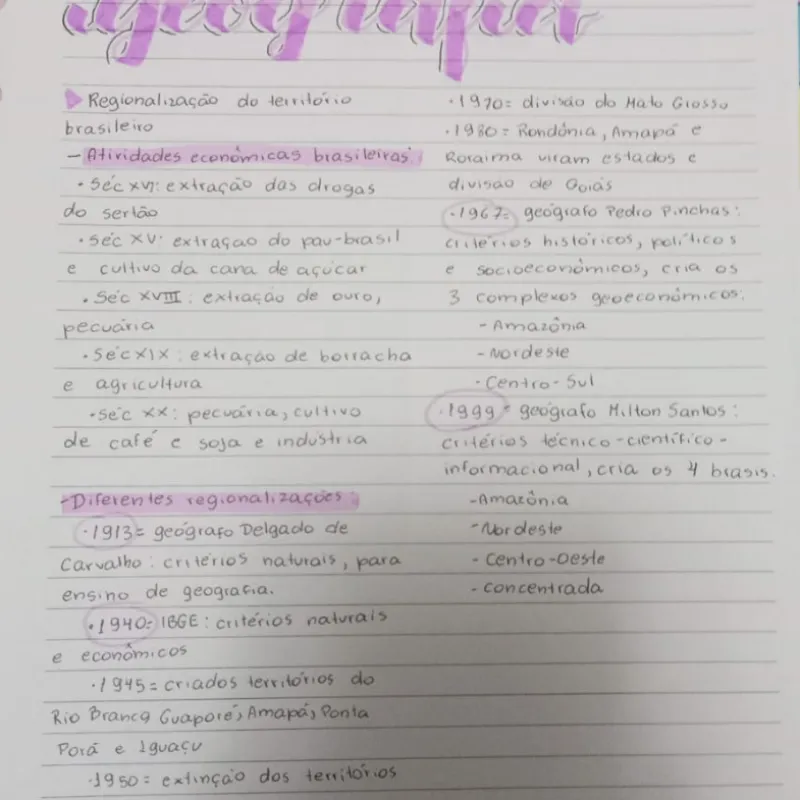 geografia
Regionalização do território
brasileiro
- Atividades econômicas brasileiras:
• Séc XVI: extração das drogas
do sertão
• Séc XV: extração do pau-brasil
e cultivo da cana de açúcar
• Séc XVIII: extração de ouro,
pecuária
• Séc XIX: extração de borracha
e agricultura
• Séc XX: pecuária, cultivo
de café e soja e indústria
- Diferentes regionalizações:
• 1913= geógrafo Delgado de
Carvalho: critérios naturais, para
ensino de geografia.
• 1940= IBGE: critérios naturais
e econômicos
• 1945= criados territórios do
Rio Branco, Guaporé, Amapá, Ponta
Porã e Iguaçu
• 1950= extinção dos territórios
• 1970= divisão do Mato Grosso
• 1980= Rondônia, Amapá e
Roraima viram estados e
divisão de Goiás
• 1967= geógrafo Pedro Pinchas:
critérios históricos, políticos
e socioeconômicos, cria os
3 complexos geoeconômicos:
- Amazônia
- Nordeste
- Centro-Sul
• 1999= geógrafo Milton Santos:
critérios técnico-científico-
informacional, cria os 4 brasis.
- Amazônia
- Nordeste
- Centro-Oeste
- Concentrada